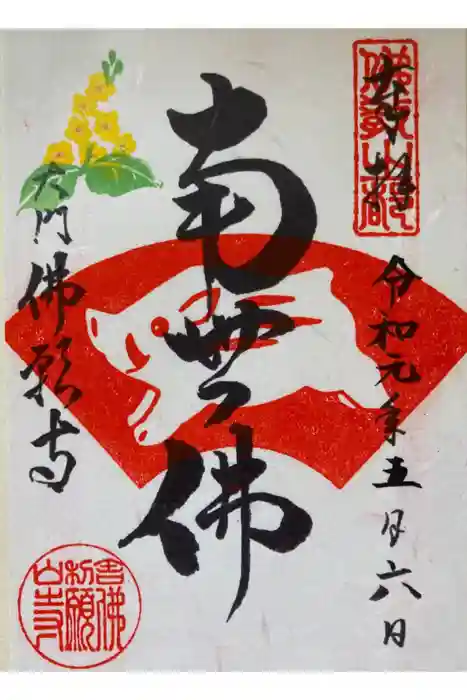 奉拝
令和元年五月六日
南無佛
大門佛願寺